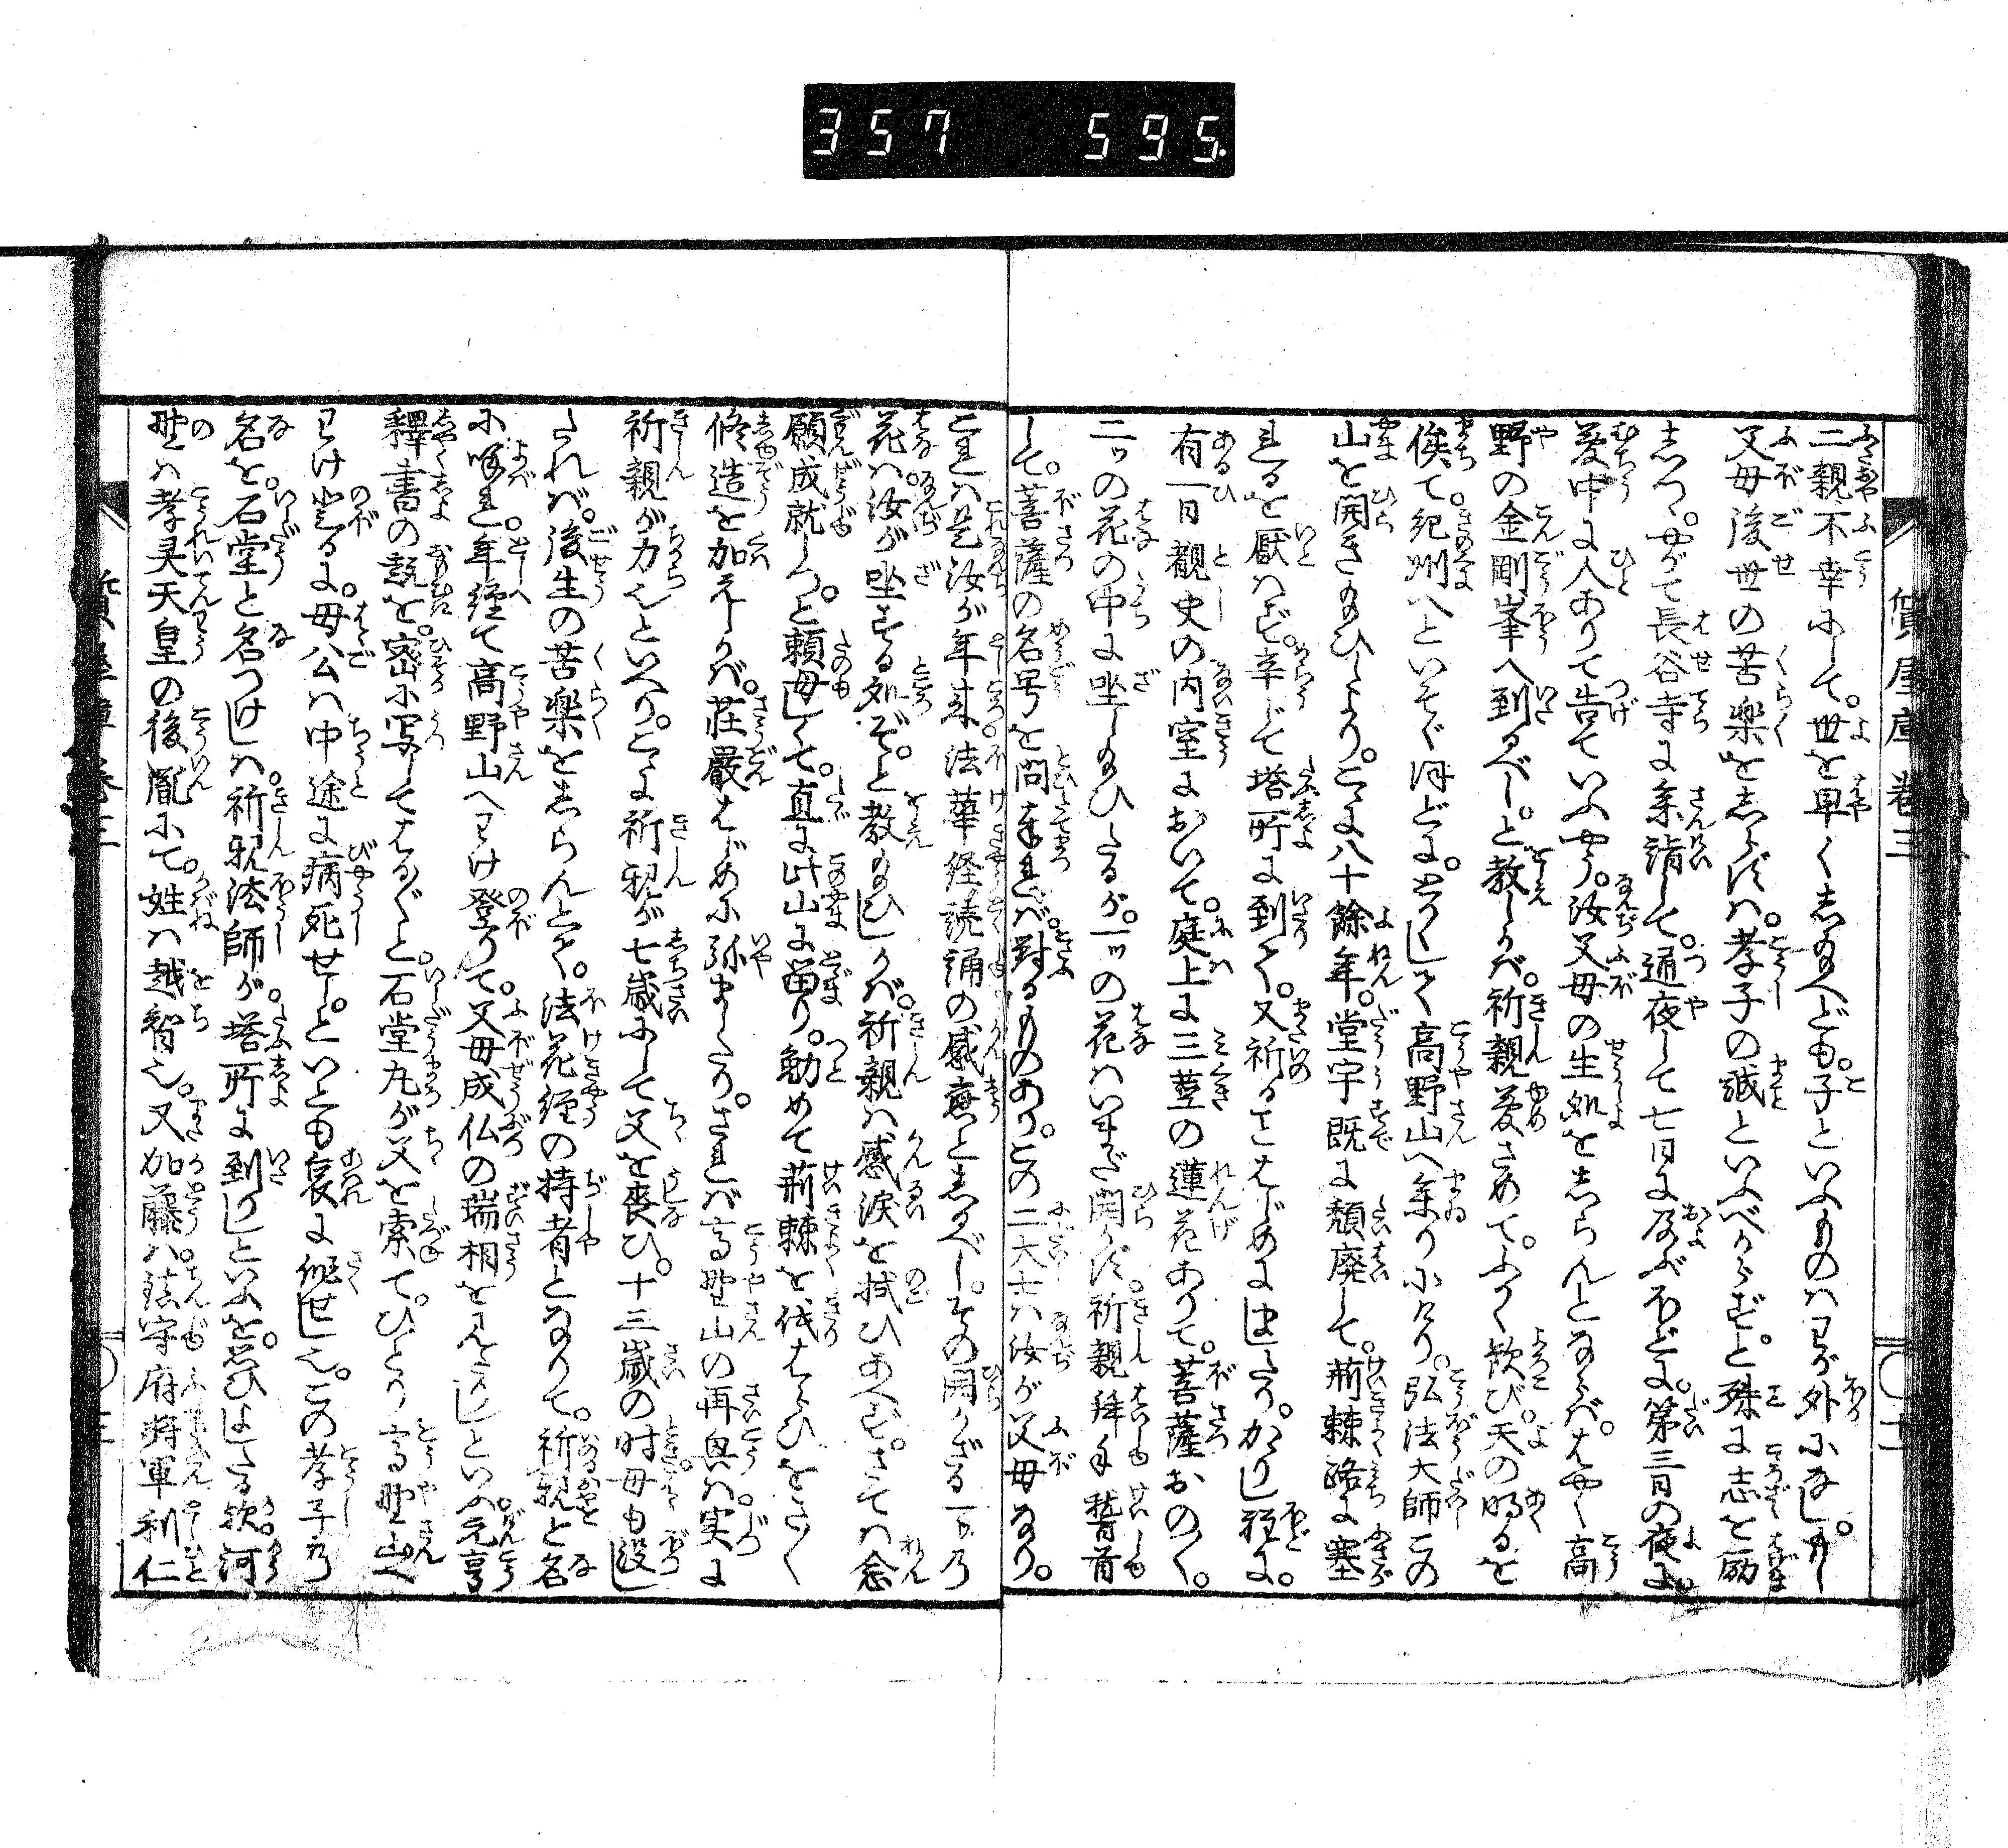 357 595.
質屋庫 巻三
二親不幸にして。世を早くし給へども。子といふものはわが外になし。もし
父母後世の苦楽をしらずは。孝子の誠といふべからずと。殊に志を励
しつゝ。やがて長谷寺に参詣して。通夜して七日に及ぶほどに。第三日の夜に。
夢中に人ありて告ていふやう。汝父母の生処をしらんとならば。はやく高
野の金剛峯へ到るべし。と教しかば。祈親夢さめて。ふかく歓び。天の明るを
俟て。紀州へといそぐほどに。とかくして高野山へ参りにけり。弘法大師この
山を開き給ひしより。こゝに八十餘年。堂宇既に頽廃して。荊棘路に塞
れるを厭はず。辛じて塔所に到りて。又祈ることはじめに固じたり。かゝりし程に。
有一日観史の内室において。庭上に三茎の蓮花ありて。菩薩おの〳〵。
二ッの花の中に坐し給ひたるが。一ッの花はいまだ開かず。祈親拝手稽首
して。菩薩の名号を問奉れば。対るものあり。この二大士は汝が父母なり。
これは是汝が年来。法華経読誦の感応としるべし。その開かざる一ツの
花は。汝が坐する処ぞ。と教給ひしかば。祈親は感涙を拭ひあへず。さては念
願成就しつ。と頼母しくて。直に此山に留り。勤めて荊棘を伐はらひをさ〳〵
修造を加えしかば。荘厳はじめに弥ましたり。されば高野山の再興は実に
祈親が力也といへり。こゝに祈親が七歳にして父を喪ひ。十三歳の時母も没し
たれば。後生の苦楽をしらんとて。法花経の持者となりて。祈親と名
に呼れ。年経て高野山へわけ登りて。父母成仏の瑞相を見たりしといふ元亨
釋書の説を。密に写してはるばると。石堂丸が父を索て。ひとり高野山へ
わけ登るに。母公は中途に病死せし。といとも哀に作せし也。この孝子の
名を。石堂と名つけしは。祈親法師が。塔所に到りしといふを。思ひよしたる歟。河
野は孝灵天皇の後胤にて。姓は越智也。又加藤は鎮守府将軍利仁